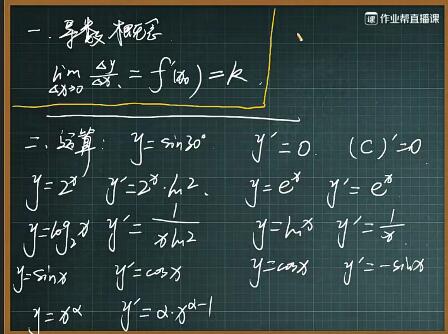 一. 导数概念
作业帮直播课
lim Δx→0 Δy/Δx = f'(x₀) = k.
二. 运算: y = sin30° y' = 0. (C)' = 0
y = 2ˣ y' = 2ˣ·ln2. y = eˣ y' = eˣ
y = log₂x y' = 1/(x ln2) y = lnx y' = 1/x.
y = sinx y' = cosx y = cosx y' = -sinx
y = x^α y' = α·x^(α-1)